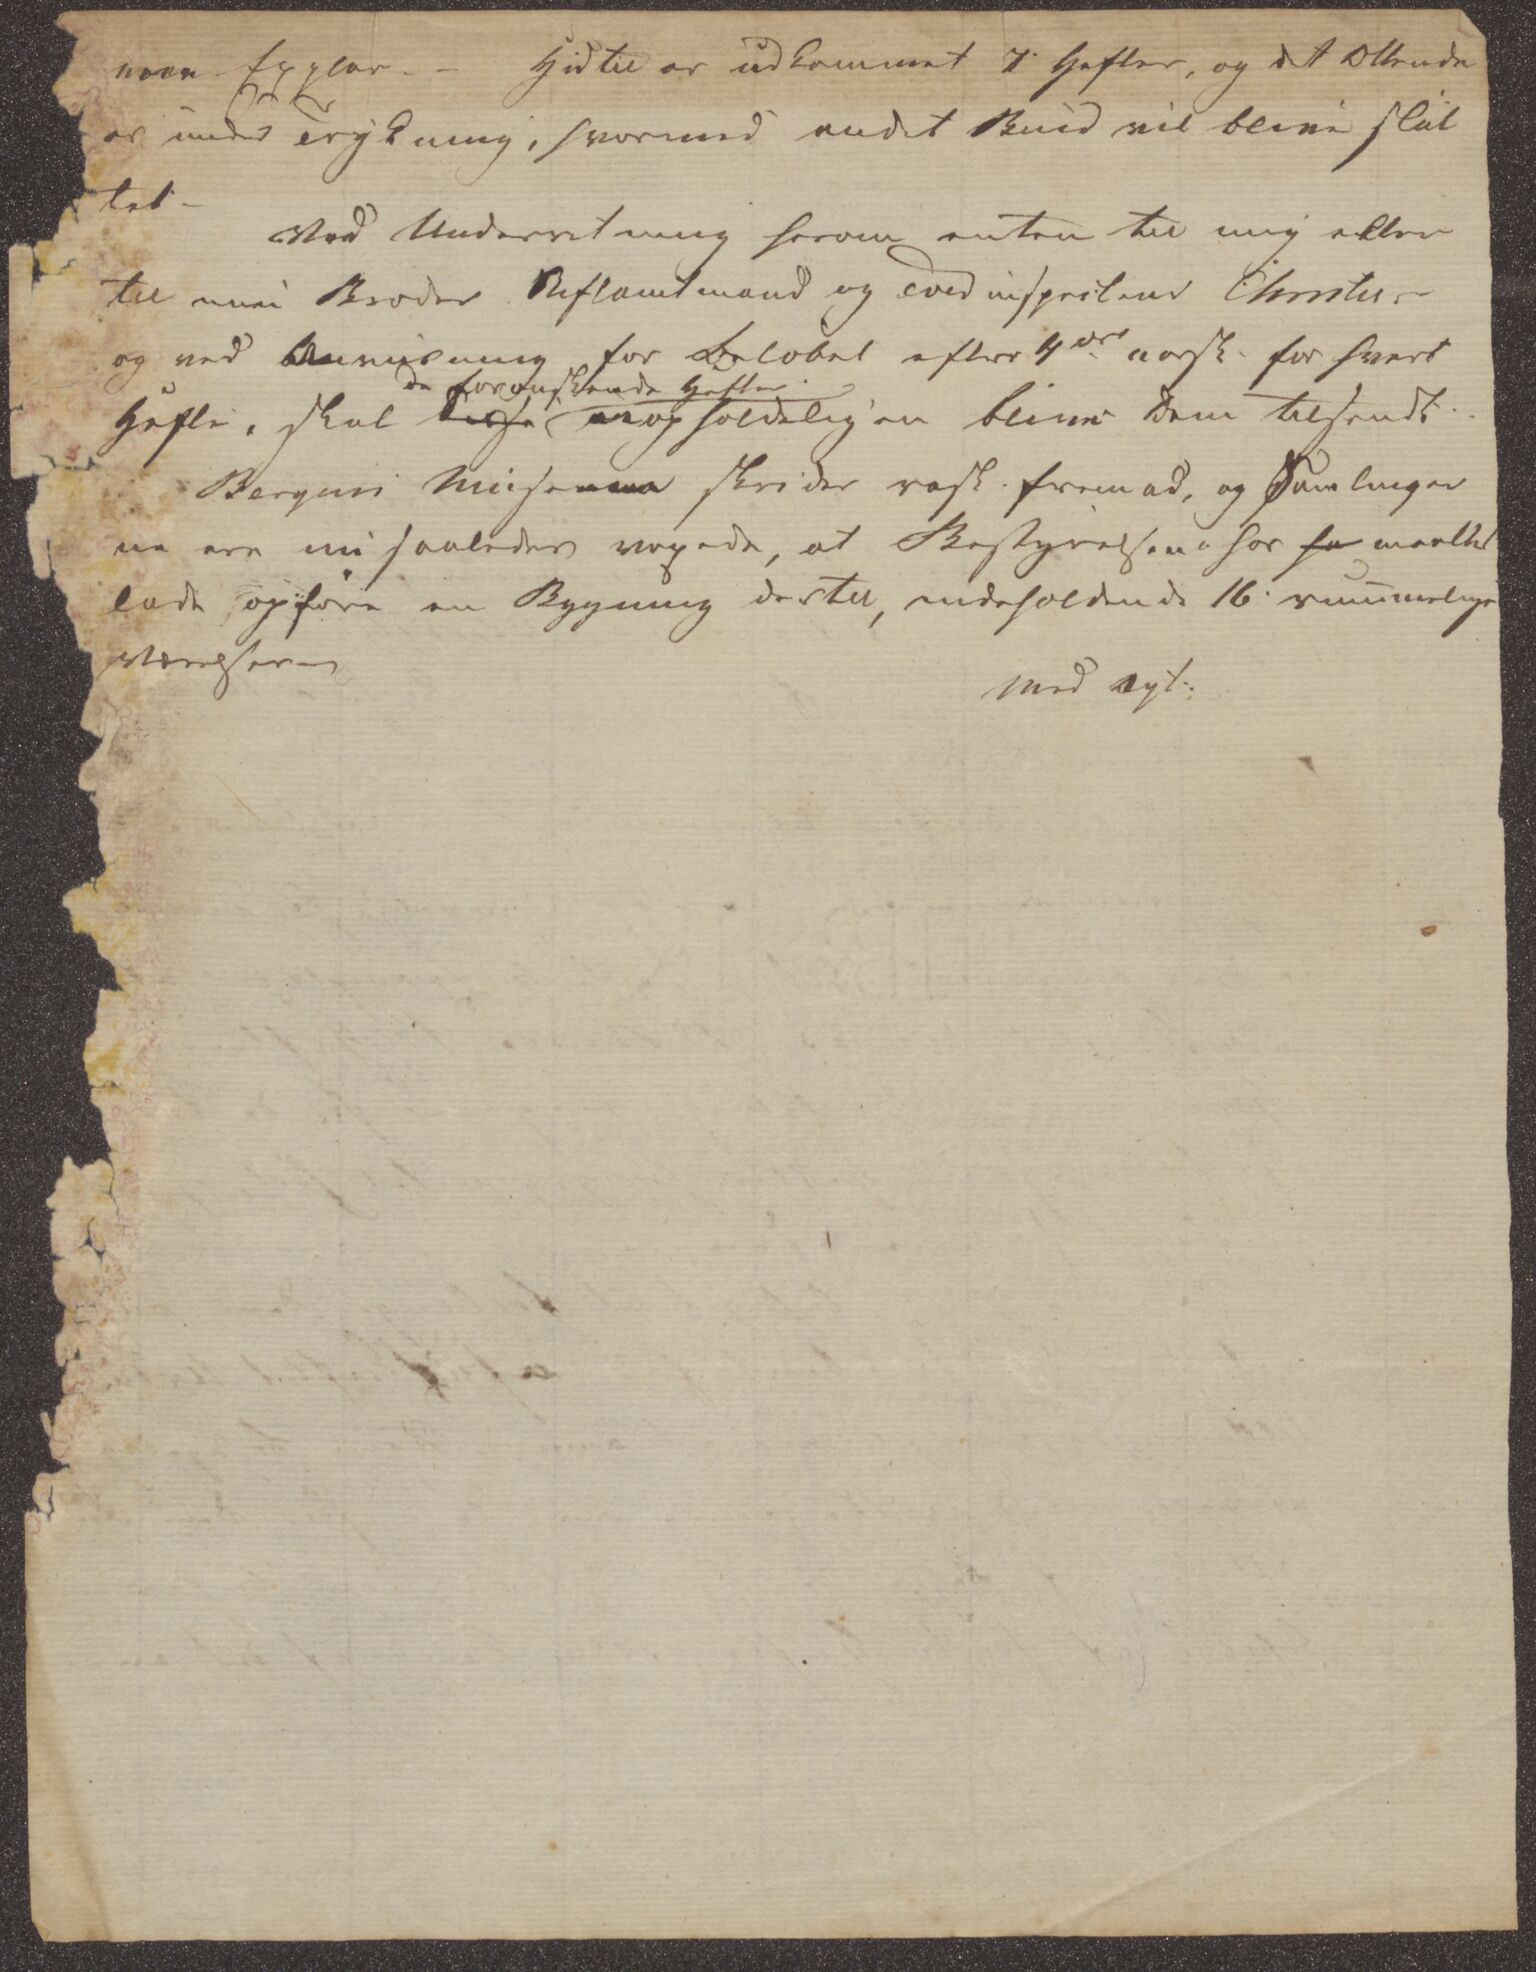 Explar. — Hidtil er udkommet 7 Hefter, og det Ottende
er under Trykning, hvormed andet Bind vil blive slut
tet —
Ved Underretning herom enten til mig eller
til min Broder Stiftamtmand og Christie —
og ved Anvisning for Beløbet efter 4 ort norsk for hvert
de forønskende Hefter
Hefte, skal disse uopholdeligen blive Dem tilsendt.
Bergens Museum skrider rask fremad, og Samlinger
ne ere nu saaledes voxede, at Bestyrelsen har maattet
lade opføre en Bygning dertil, indeholdende 16 rummelige
Værelser —
Med Agt.